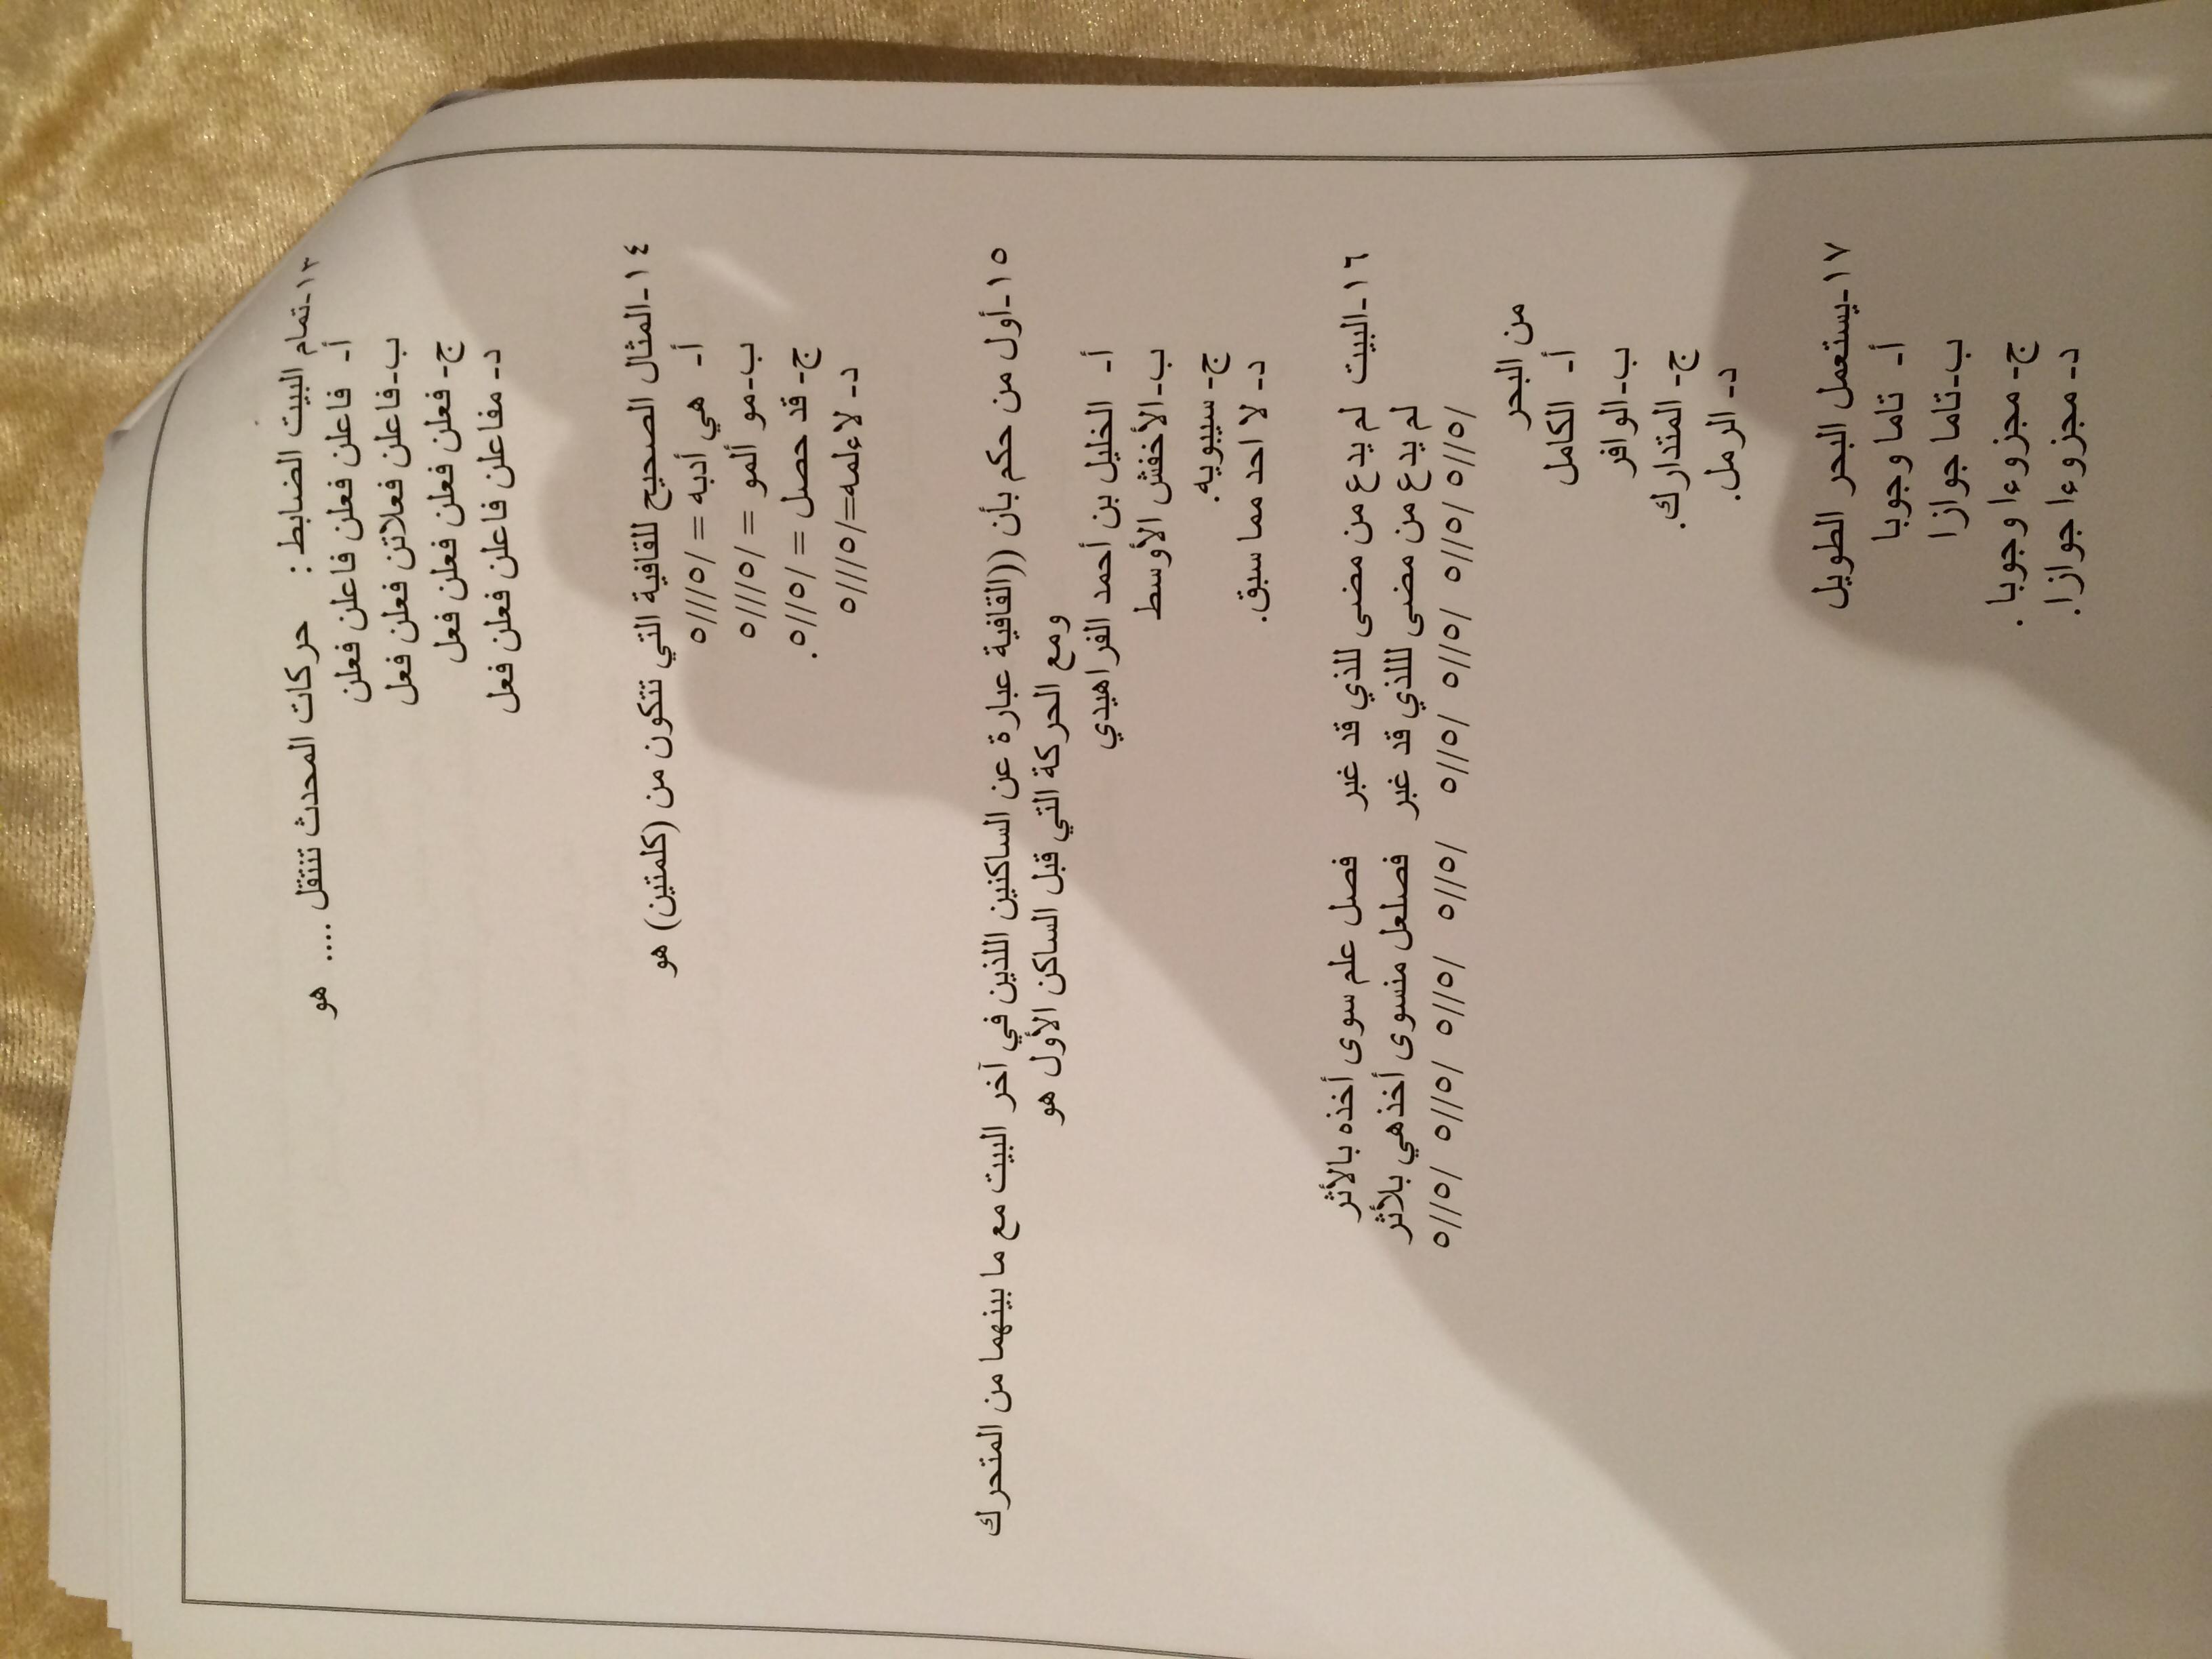 ١٣-تمام البيت الضابط : حركات المحدث تنتقل .... هو
أ- فاعلن فعلن فاعلن فعلن
ب-فاعلن فعلاتن فعلن فعل
ج- فعلن فعلن فعلن فعل
د- مفاعلن فاعلن فعلن فعل
١٤-المثال الصحيح للقافية التي تتكون من (كلمتين) هو
أ- هي أدبه = /٥///٥
ب-مو ألمو = /٥///٥
ج- قد حصل = /٥//٥.
د- لاءلمه=/٥///٥
١٥-أول من حكم بأن ((القافية عبارة عن الساكنين اللذين في آخر البيت مع ما بينهما من المتحرك
ومع الحركة التي قبل الساكن الأول هو
أ- الخليل بن أحمد الفراهيدي
ب-الأخفش الأوسط
ج- سيبويه.
د- لا احد مما سبق.
١٦-البيت لم يدع من مضى للذي قد غبر فصل علم سوى أخذه بالأثر
لم يدع من مضى لللذي قد غبر فصلعل منسوى أخذهي بلأثر
/٥//٥ /٥//٥ /٥//٥ /٥//٥ /٥//٥ /٥//٥ /٥//٥ /٥//٥
من البحر
أ- الكامل
ب-الوافر
ج- المتدارك.
د- الرمل.
١٧-يستعمل البحر الطويل
أ- تاما وجوبا
ب-تاما جوازا
ج- مجزوءا وجوبا .
د- مجزوءا جوازا.